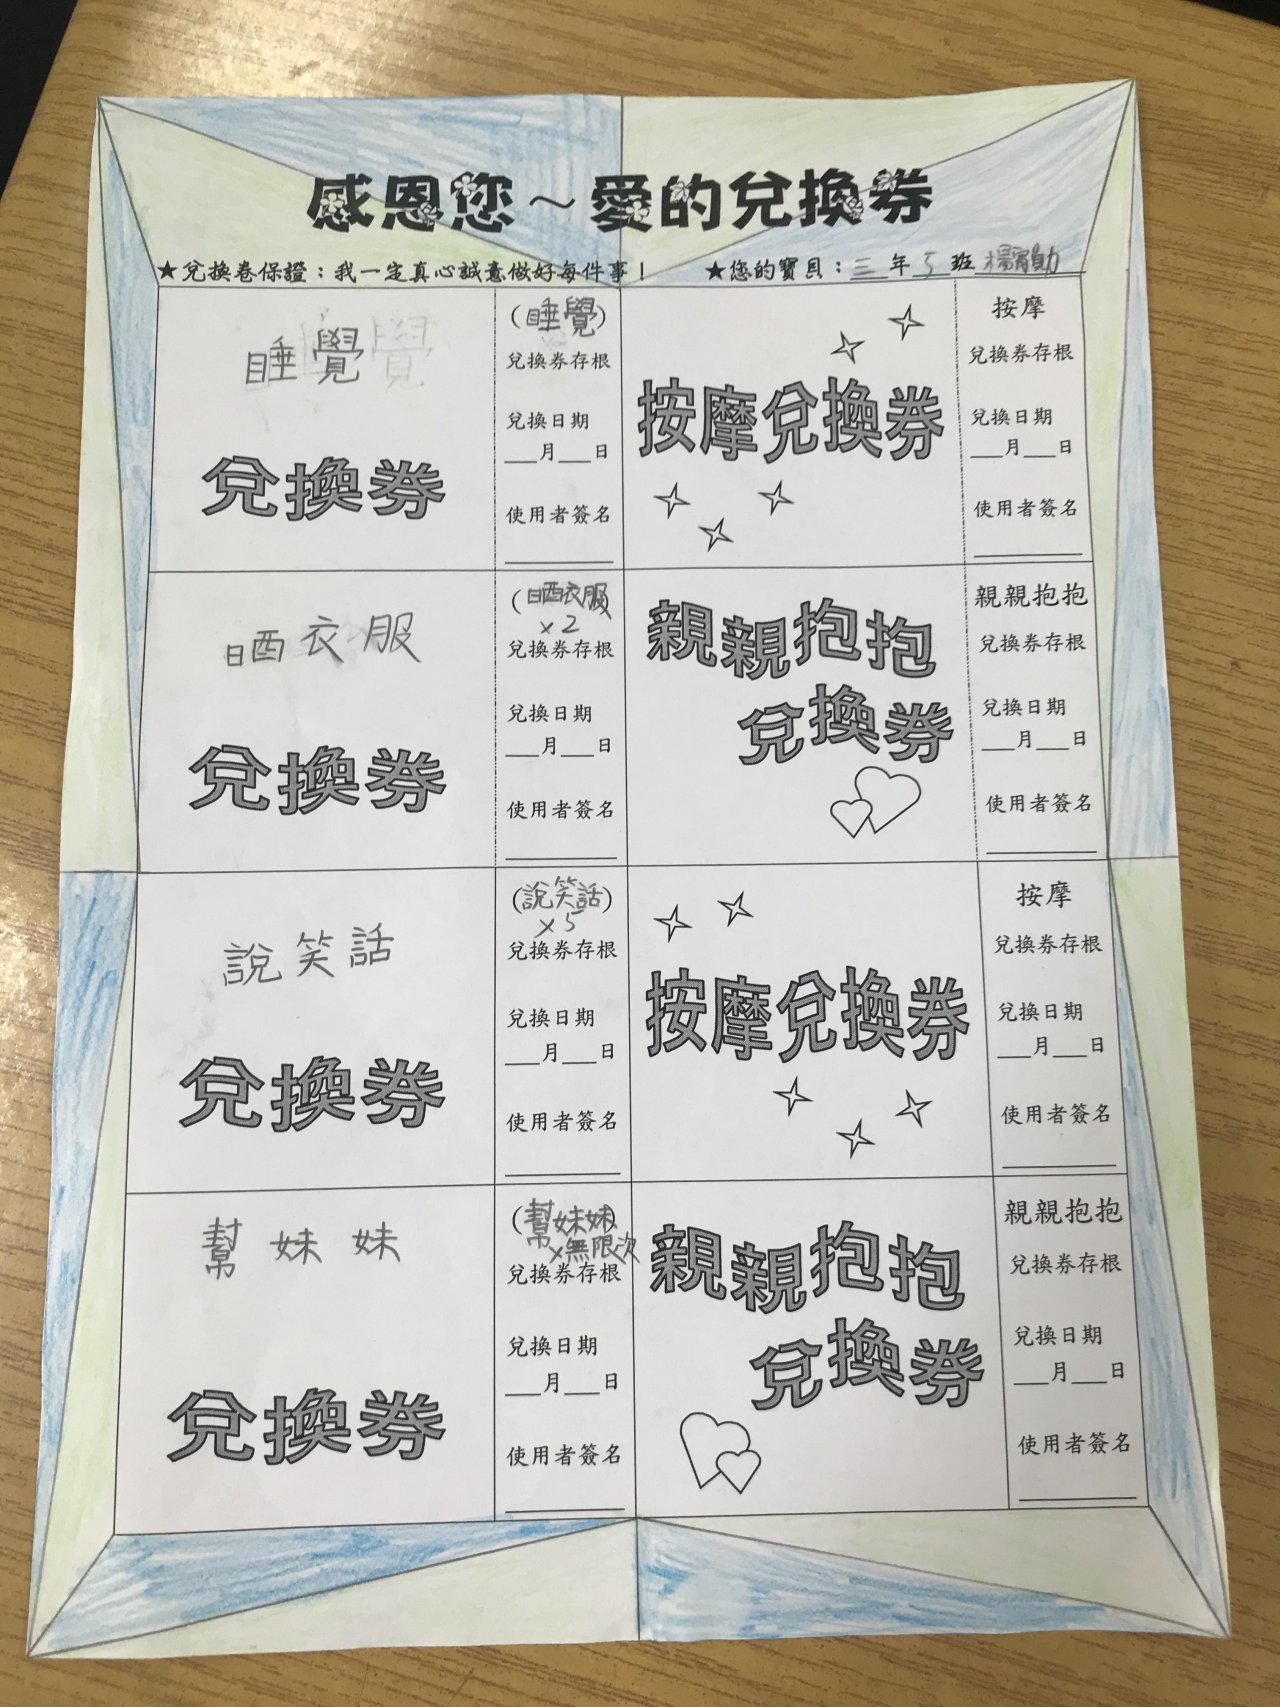 感恩您～愛的兌換券
★兌換卷保證：我一定真心誠意做好每件事！
★您的寶貝：三年5班楊
睡覺
兌換券
(睡覺)
兌換券存根
兌換日期
__月__日
使用者簽名
按摩兌換券
按摩
兌換券存根
兌換日期
__月__日
使用者簽名
晒衣服
兌換券
(晒衣服)
x2
兌換券存根
兌換日期
__月__日
使用者簽名
親親抱抱
兌換券
親親抱抱
兌換券存根
兌換日期
__月__日
使用者簽名
說笑話
兌換券
(說笑話)
x5
兌換券存根
兌換日期
__月__日
使用者簽名
按摩兌換券
按摩
兌換券存根
兌換日期
__月__日
使用者簽名
幫妹妹
兌換券
(幫妹妹)
x無限次
兌換券存根
兌換日期
__月__日
使用者簽名
親親抱抱
兌換券
親親抱抱
兌換券存根
兌換日期
__月__日
使用者簽名